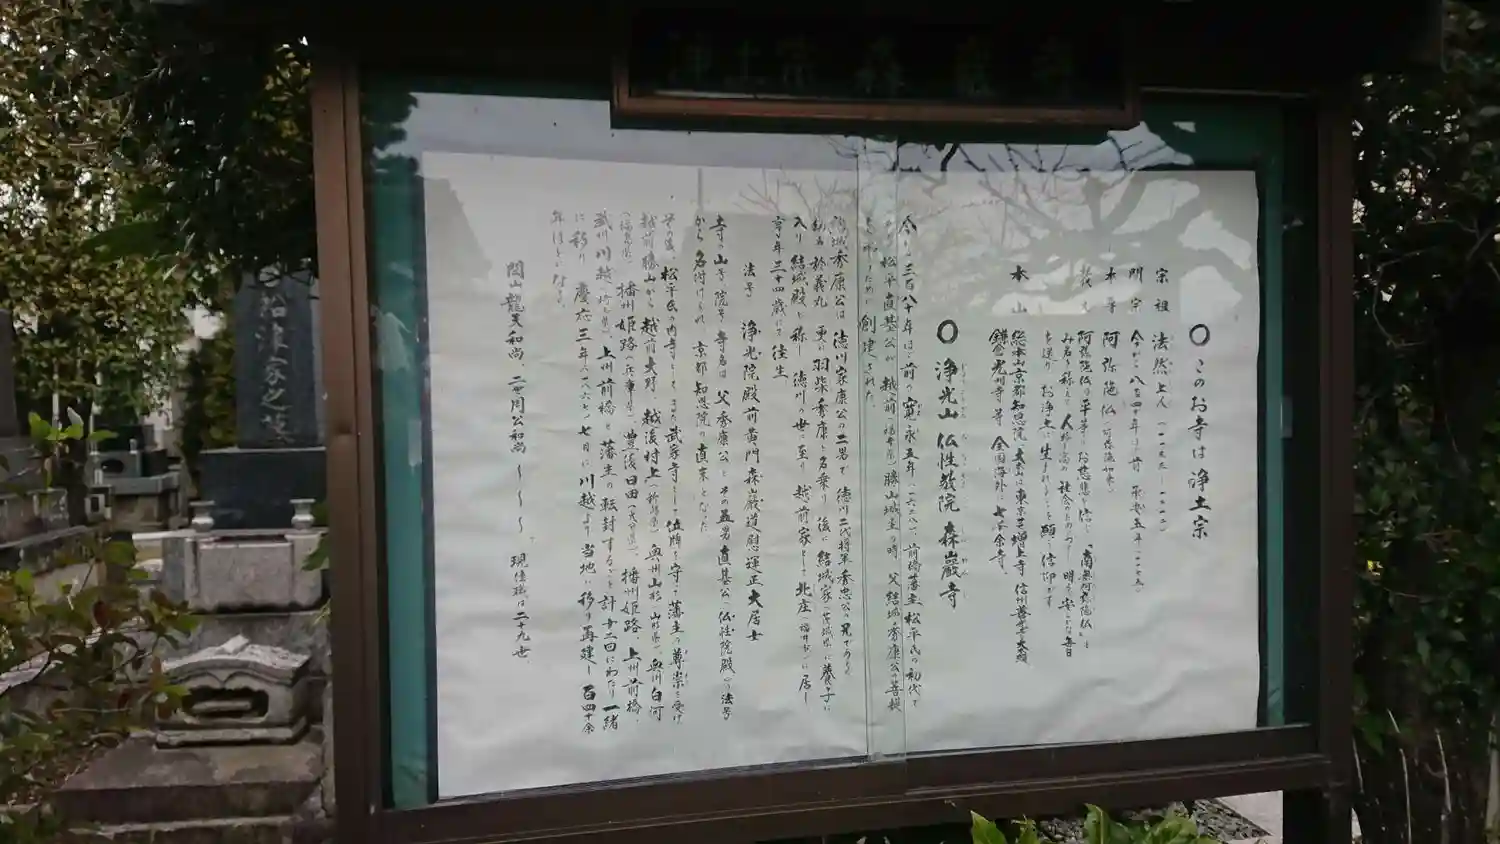 〇 このお寺は 浄土宗
宗祖 法然上人(一一三三~一二一二)
開宗 今から八百四十年ほど前 承安五年(一一七五)
本尊 阿弥陀仏(阿弥陀如来)
教え 阿弥陀仏の平等のお慈悲を信じ、「南無阿弥陀仏」と
み名を称えて、人格を高め 社会のためにつくし 明るい安らかな毎日
を送り お浄土に生まれることを願う信仰です
本山 総本山京都知恩院、大本山は東京芝増上寺 信州善光寺大本願
鎌倉光明寺等 全国海外に七千余寺。
〇 浄光山 仏性教院 森巖寺
今から三百八十年ほど前の寛永五年(一六二八)、前橋藩主松平氏の初代で
松平直基公が、越前(福井県)勝山城主の時 父結城秀康公の菩提
を弔うために創建された。
結城秀康公は 徳川家康公の二男で 徳川二代将軍秀忠公の兄であり
幼名於義丸 更に羽柴秀康と名乗り 後に結城家(茨城県)に養子に
入り結城殿と称し 徳川の世に至り 越前家として北庄(福井市)に居し
享年三十四歳にて往生
法号 浄光院殿前黄門森巖道慰運正大居士
寺の山号 院号 寺名は 父秀康公と その五男直基公(仏性院殿)の法号
から名付けられ、京都知恩院の直末となった
その後、松平氏の内寺として また武家寺として 位牌を守って藩主の尊崇を受け
越前勝山から 越前大野、越後村上(新潟県)、奥州山形(山形県)、奥州白河
(福島県)、播州姫路(兵庫県)、豊後日田(大分県)、播州姫路、上州前橋、
武州川越(埼玉県)、上州前橋と藩主の転封すること計十二回にわたり 一緒
に移り 慶応三年(一八六七)七月に川越より当地に移り再建し 百四十余
年ほどとなる。
開山龍天和尚、二世周公和尚~~~。現住職は二十九世
松津家之墓